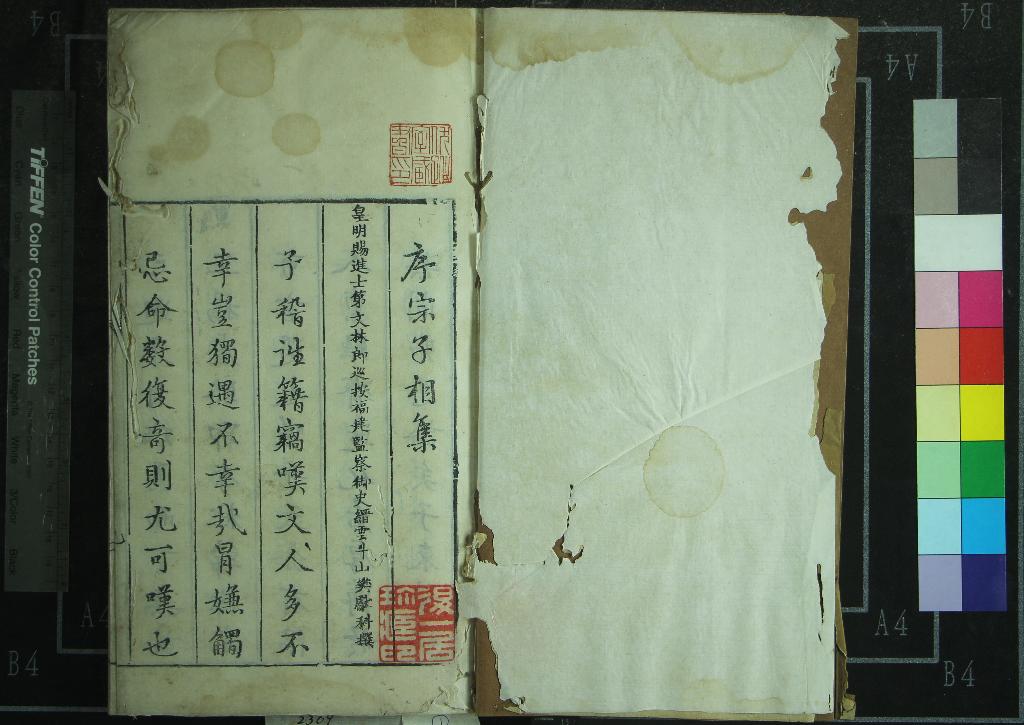 序宗子相集
皇明賜進士第文林郎巡按福建監察御史縉雲斗山樊獻科撰
予稽往籍竊嘆文人多不
幸豈獨遇不幸哉冐嫌觸
忌命數復奇則尤可嘆也
TIFFEN Color Control Patches
B4
A4
B4
A4
A4
B4
A4
B4
2309